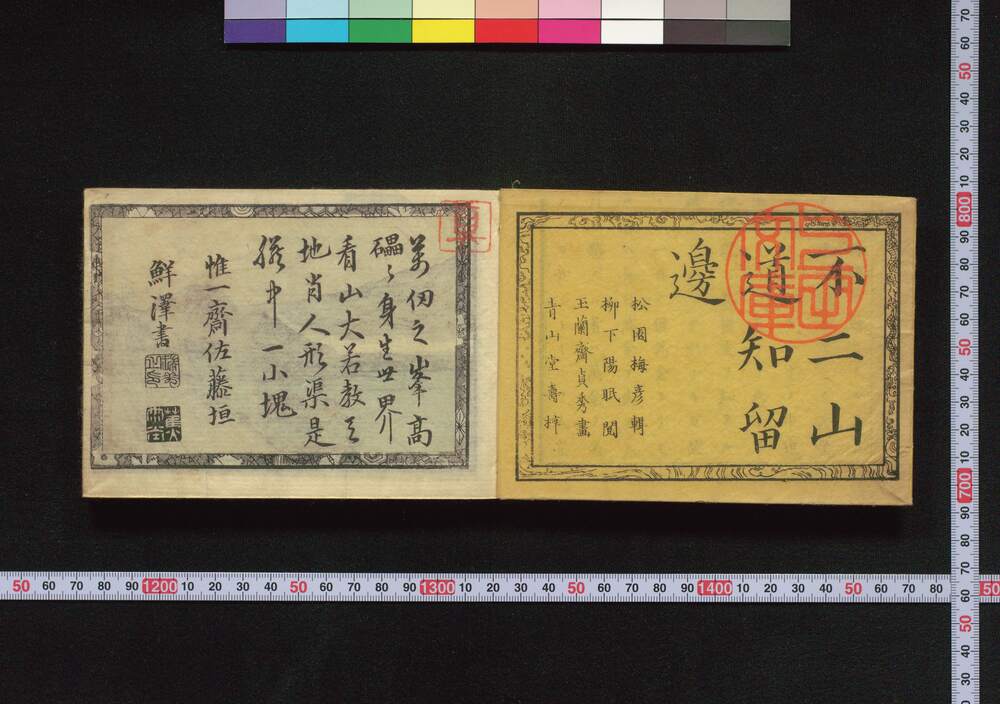 不二山
道知留
邊
松園梅彦輯
柳下陽眠閲
玉蘭齋貞秀畫
青山堂壽梓
萬仞之峯高
礧々身生世界
看山大若教之
地肖人形渠是
臍中一小塊
惟一齋佐藤垣
鮮澤書
50 60 70 80 90 1200 10 20 30 40 50 60 70 80 90 1300 10 20 30 40 50 60 70 80 90 1400 10 20 30 40 50 60 70 80 50
70 60 50 40 30 20 10 800 90 80 70 60 50 40 30 20 10 700 90 80 70 60 50 40 30